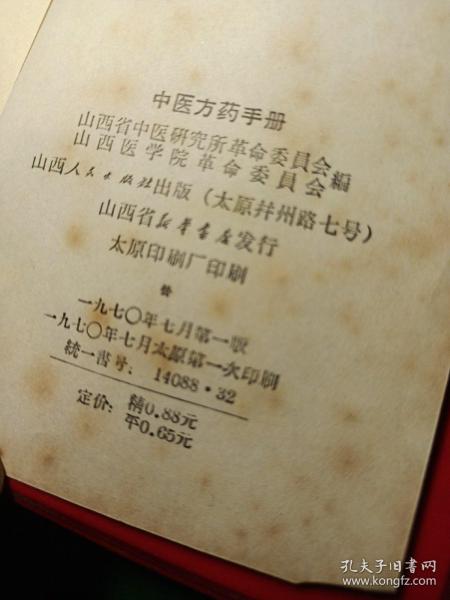 中医方药手册
山西省中医研究所革命委員会編
山西医学院革命委員会
山西人民出版社出版（太原幷州路七号）
山西省新华書店发行
太原印刷厂印刷
一九七〇年七月第一版
一九七〇年七月太原第一次印刷
統一書号：14088·32
定价：精0.88元
平0.65元
孔夫子旧书网
www.kongfz.com